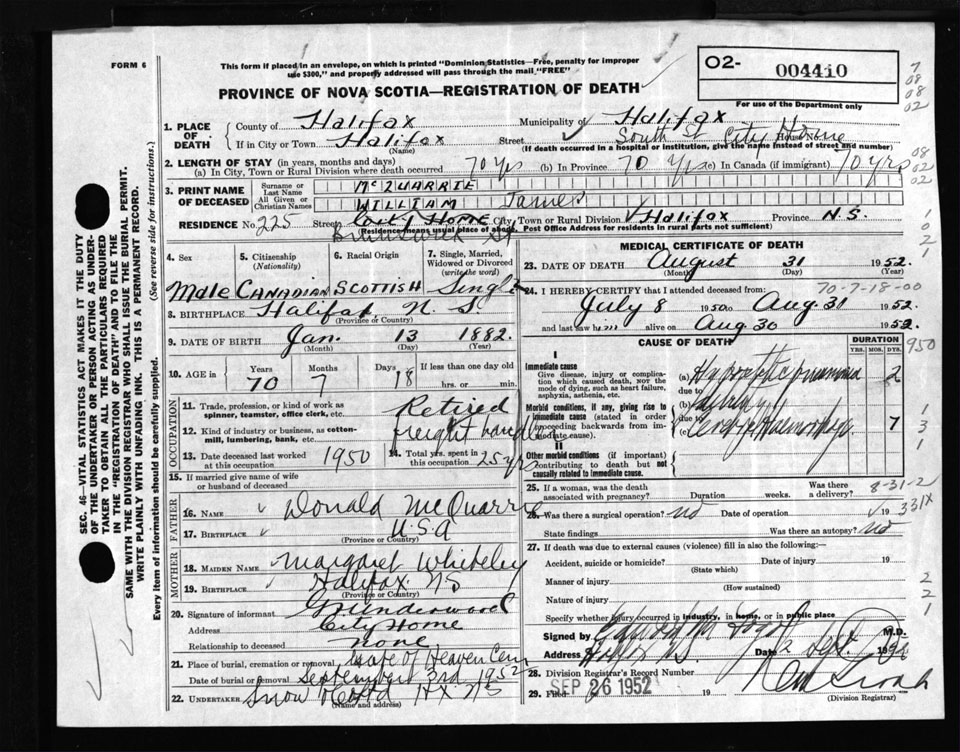 FORM 6
This form if placed in an envelope, on which is printed "Dominion Statistics—Free, penalty for improper
use $300," and properly addressed will pass through the mail "FREE"
O2- 004410
For use of the Department only
PROVINCE OF NOVA SCOTIA—REGISTRATION OF DEATH
7
08
08
02
1. PLACE OF DEATH
County of Halifax Municipality of Halifax
If in City or Town Halifax Street South St City Home
(Name) (If death occurred in a hospital or institution, give the name instead of street and number)
2. LENGTH OF STAY (in years, months and days)
(a) In City, Town or Rural Division where death occurred 70 yrs (b) In Province 70 yrs (c) In Canada (if immigrant) 70 yrs
08
02
02
3. PRINT NAME OF DECEASED
Surname or Last Name McQUARRIE
All Given or Christian Names WILLIAM James
RESIDENCE No. 225 Street City Home City Town or Rural Division Halifax Province N.S.
Brunswick St
(Residence means usual place of abode. Post Office Address for residents in rural parts not sufficient)
1
0
2
4. Sex
Male
5. Citizenship (Nationality)
CANADIAN
6. Racial Origin
SCOTTISH
7. Single, Married, Widowed or Divorced (write the word)
Single
8. BIRTHPLACE Halifax, N. S.
(Province or Country)
9. DATE OF BIRTH Jan. 13 1882
(Month) (Day) (Year)
10. AGE in Years 70 Months 7 Days 18 If less than one day old
hrs. or min.
OCCUPATION
11. Trade, profession, or kind of work as spinner, teamster, office clerk, etc. Retired
12. Kind of industry or business, as cotton-mill, lumbering, bank, etc. freight handler
13. Date deceased last worked at this occupation 1950
14. Total yrs. spent in this occupation 25 yrs
15. If married give name of wife or husband of deceased
FATHER
16. NAME Donald McQuarrie
17. BIRTHPLACE U.S.A
(Province or Country)
MOTHER
18. MAIDEN NAME Margaret Whiteley
19. BIRTHPLACE Halifax NS
(Province or Country)
20. Signature of informant G Underwood
Address City Home
Relationship to deceased none
21. Place of burial, cremation or removal Gate of Heaven Cem
Date of burial or removal September 3rd 1952
22. UNDERTAKER Snow & Co Ltd Hx NS
(Name and address)
MEDICAL CERTIFICATE OF DEATH
23. DATE OF DEATH August 31 1952.
(Month) (Day) (Year)
24. I HEREBY CERTIFY that I attended deceased from: 70-7-18-00
July 8 1950 to Aug. 31 1952.
and last saw him alive on Aug 30 1952.
CAUSE OF DEATH
DURATION
YRS. MOS. DYS.
950
I
Immediate cause
Give disease, injury or complication which caused death, NOT the mode of dying, such as heart failure, asphyxia, asthenia, etc.
(a) Hypostatic pneumonia 2
due to
Morbid conditions, if any, giving rise to immediate cause (stated in order proceeding backwards from immediate cause).
(b)
due to
(c) Cerebral Haemorrhage 7
3
1
II
Other morbid conditions (if important) contributing to death but not causally related to immediate cause.
25. If a woman, was the death associated with pregnancy? Duration weeks. Was there a delivery?
8-31-2
26. Was there a surgical operation? no Date of operation 19
331X
State findings Was there an autopsy? no
27. If death was due to external causes (violence) fill in also the following:—
Accident, suicide or homicide? Date of injury 19
(State which)
Manner of injury
(How sustained)
Nature of injury
2
2
1
Specify whether injury occurred in industry, in home, or in public place
Signed by M.D.
Address Halifax NS Date 2 Sept 1952
28. Division Registrar's Record Number
29. Filed SEP 26 1952 19
(Division Registrar)
SEC. 46—VITAL STATISTICS ACT MAKES IT THE DUTY
OF THE UNDERTAKER OR PERSON ACTING AS UNDER-
TAKER TO OBTAIN ALL THE PARTICULARS REQUIRED
IN THE "REGISTRATION OF DEATH" AND TO FILE THE
SAME WITH THE DIVISION REGISTRAR WHO SHALL ISSUE THE BURIAL PERMIT.
WRITE PLAINLY WITH UNFADING INK. THIS IS A PERMANENT RECORD.
Every item of information should be carefully supplied. (See reverse side for instructions.)